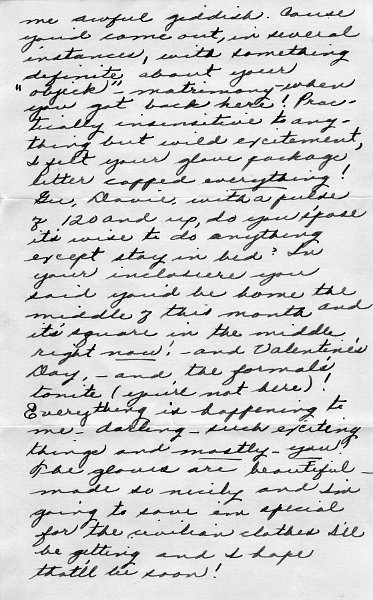 me awful giddish. Cause
you'd come out, in several
instances, with something
definite about your
"objick" - matrimony - when
you got back here! Prac-
tically insensitive to any-
thing but wild excitement,
I felt your glove package
letter capped everything!
Gee, Davie, with a pulse
of 120 and up, do you s'pose
it's wise to do anything
except stay in bed? In
your inclosure you
said you'd be home the
middle of this month and
it's square in the middle
right now! - and Valentine's
Day, - and the formal's
tonite (you're not here)!
Everything is happening to
me - darling - such exciting
things and mostly - you
The gloves are beautiful -
made so nicely and I'm
going to save 'em special
for the civilian clothes I'll
be getting and I hope
that'll be soon!